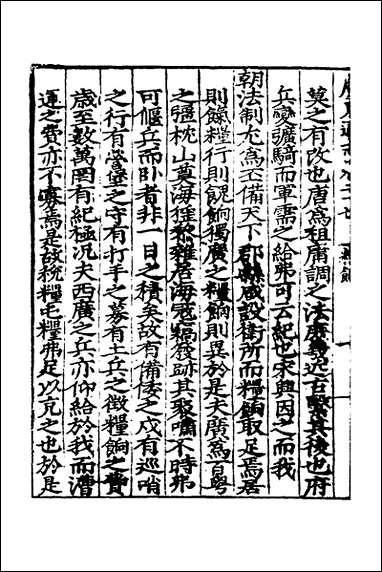 莫之有改也唐爲租庸調之法庶幾近古繄其後也府
兵變彍騎而軍需之給弗可云紀也宋興因之而我
朝法制尤爲丕備天下郡縣咸設衛所而糧餉取足焉居
則餼糧行則餽餉獨廣之糧餉則異於是夫廣爲百粤
之疆枕山奠海徭黎雜居海寇竊發跡其聚嘯不時弗
可偃兵而卧者非一日之積矣故有備倭之戍有巡哨
之行有營堡之守有打手之募有土兵之徵糧餉之費
歲至數萬罔有紀極况夫西廣之兵亦仰給於我而漕
運之費亦不寡焉是故稅糧屯糧弗足以克之也於是